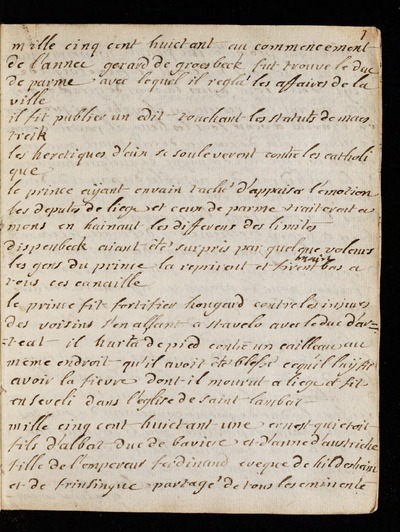 1
mille cinq cent huictant au commencement
de l'annee gerard de groesbeck fut trouve le duc
de parme avec lequel il regla les affaires de la
ville
il fit publier un edit touchant les statuts de maes
treik
les heretiques d'eix se souleverent contre les catholi
que
le prince aijant envain tachè d'appaiser l'emotion
les deputes de liege et ceux de parme traiterent a
mons en hainaut les differens des limites
dispenbeck aiant ètè surpris par quelque voleurs
les gens du prince la reprirent et firent main bas a
tous ces canaille
le prince fit fortifier hougard contre les injures
des voisins s'en allant a stavelo avec le duc d'ar=
t il hurta de pied contre un cailleau au
meme endroit qu'il avoit ètè blessè ce qui luij fit
avoir la fievre dont il mourut a liege et fut
enseveli dans l'eglise de saint lambert
mille cinq cent huictant une ernest qui etoit
fils d'albert duc de baviere et d'anne d'austriche
fille de l'empereur ferdinand eveque de hildesheim
et de frinsingue partagè de tous les eminente